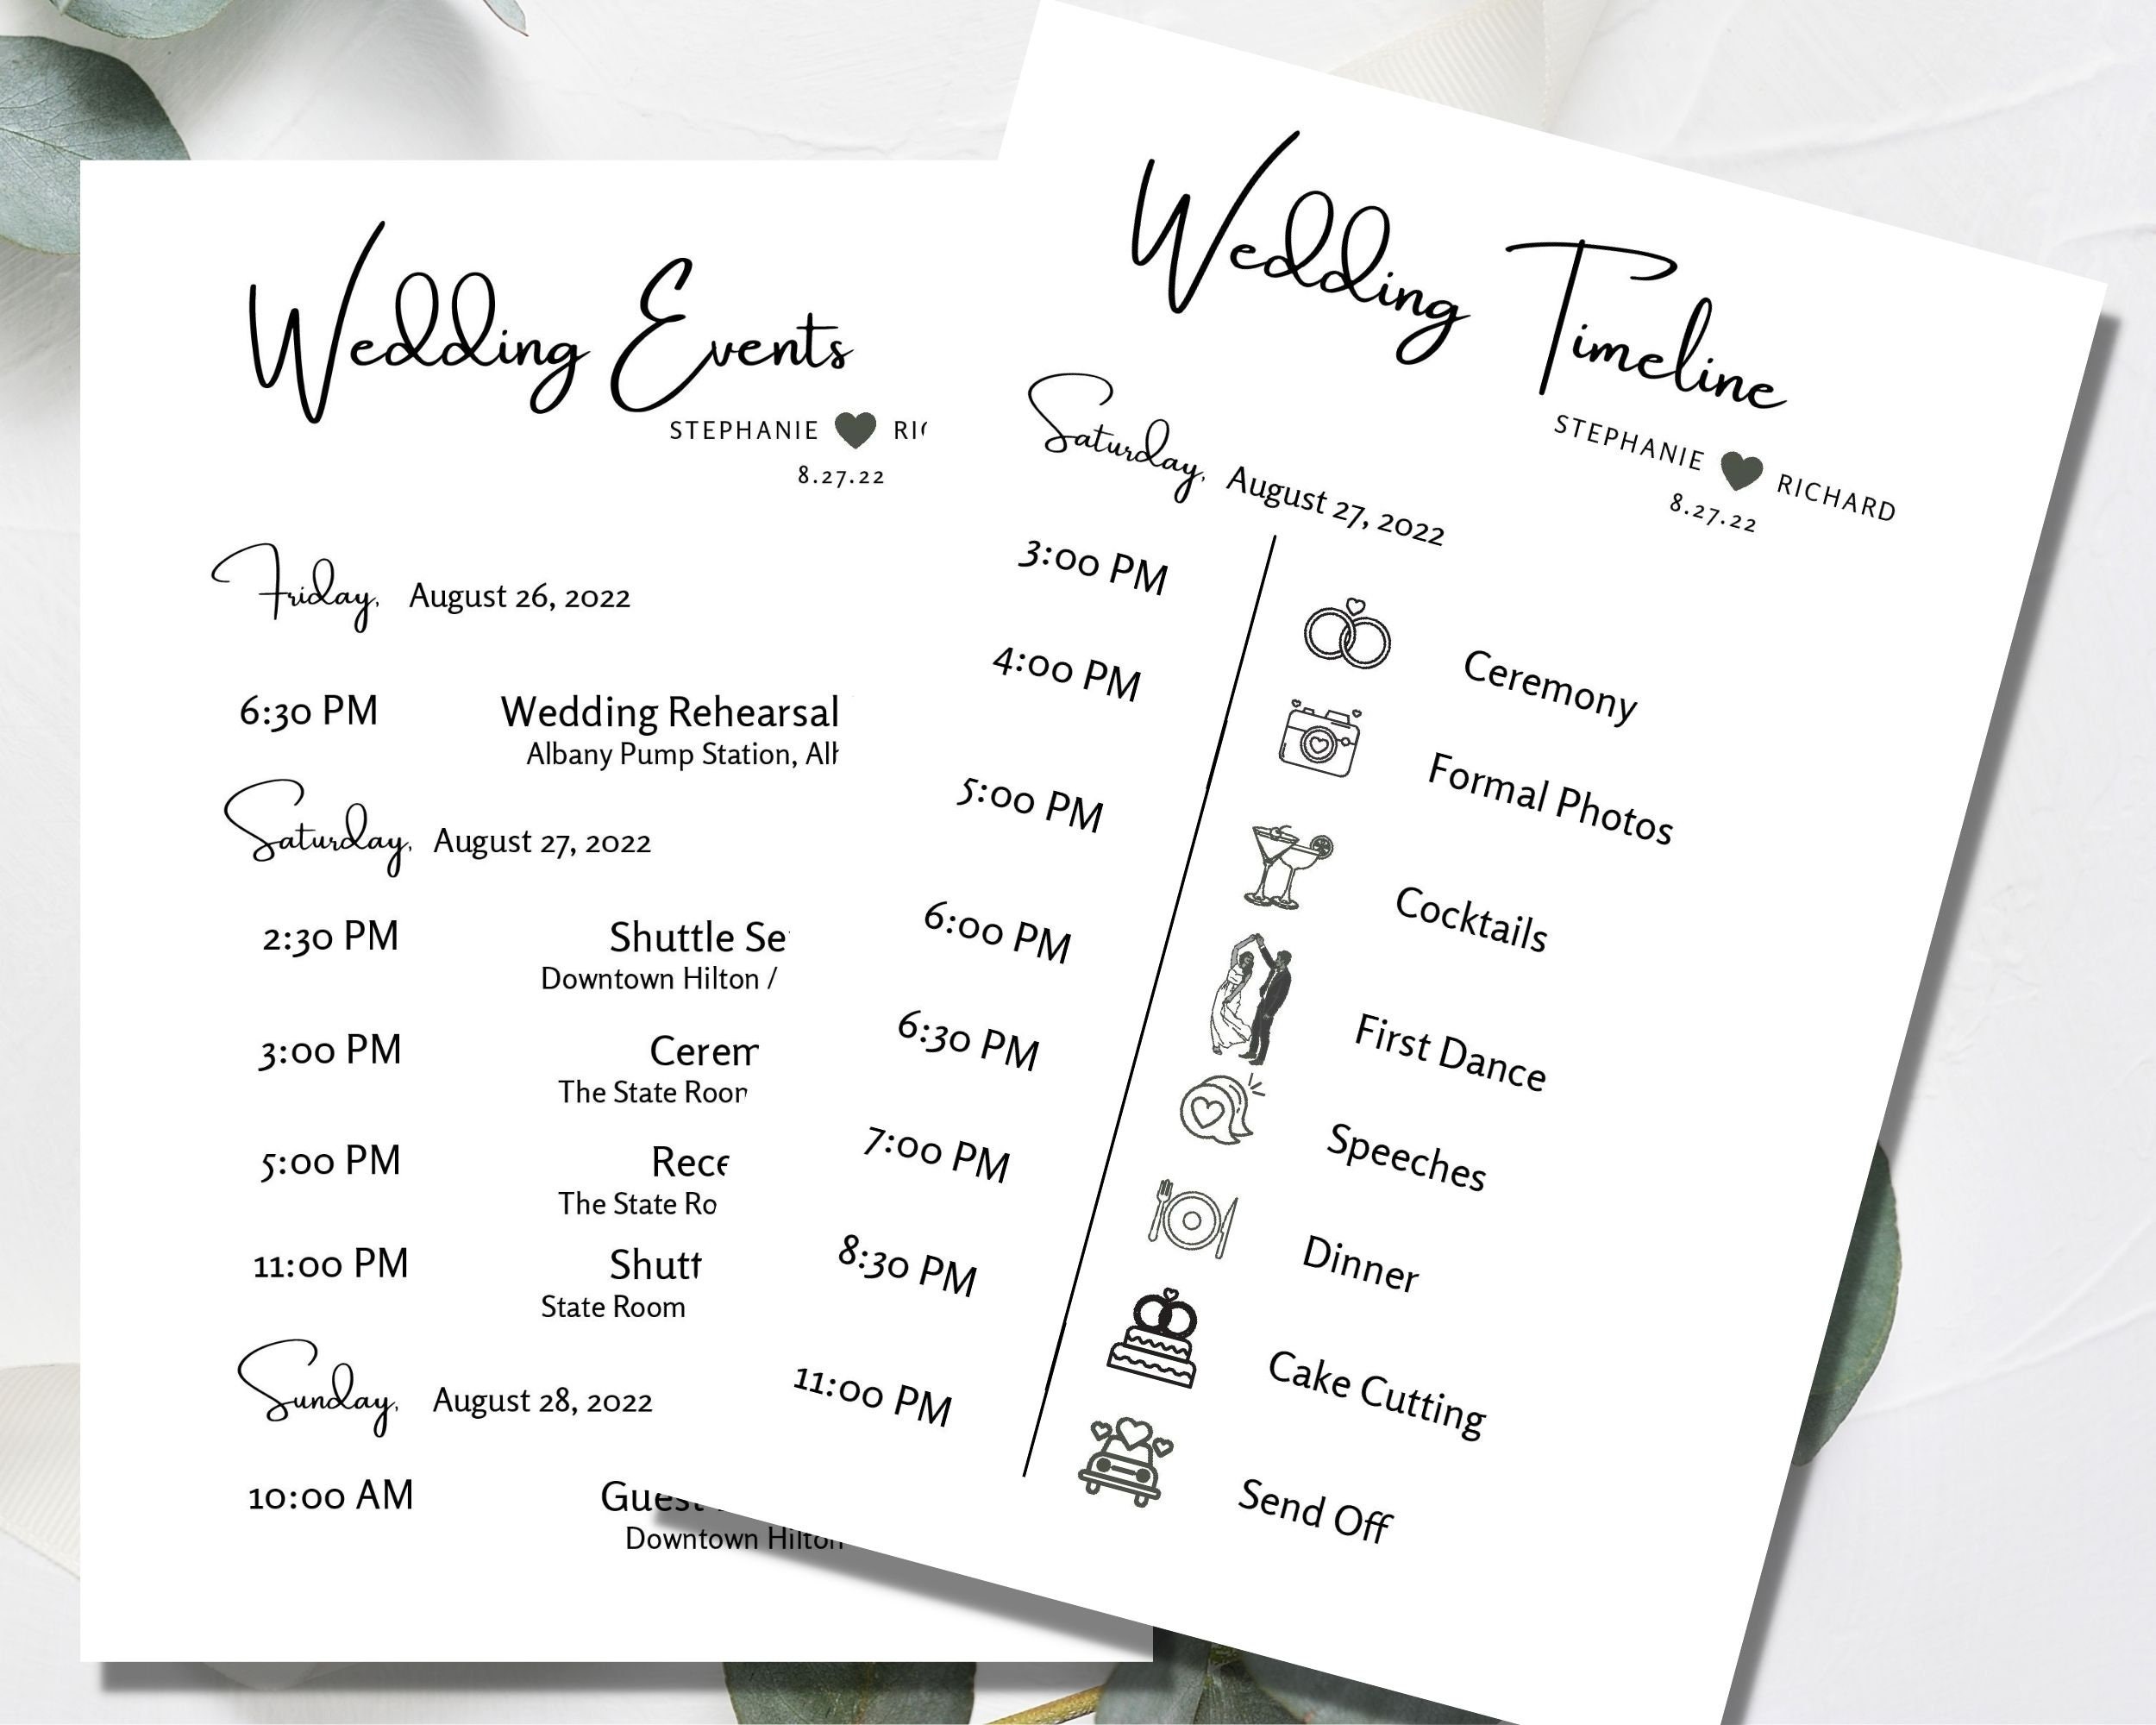 Wedding Events
STEPHANIE
8.27.22
Friday, August 26, 2022
6:30 PM Wedding Rehearsal
Albany Pump Station,
Saturday, August 27, 2022
2:30 PM Shuttle
Downtown Hilton /
3:00 PM
The State
5:00 PM
The State
11:00 PM
State Room
Sunday, August 28, 2022
10:00 AM
Downtown Hilton
Wedding Timeline
STEPHANIE RICHARD
8.27.22
Saturday, August 27, 2022
3:00 PM Ceremony
4:00 PM Formal Photos
5:00 PM Cocktails
6:00 PM First Dance
6:30 PM Speeches
7:00 PM Dinner
8:30 PM Cake Cutting
11:00 PM Send Off